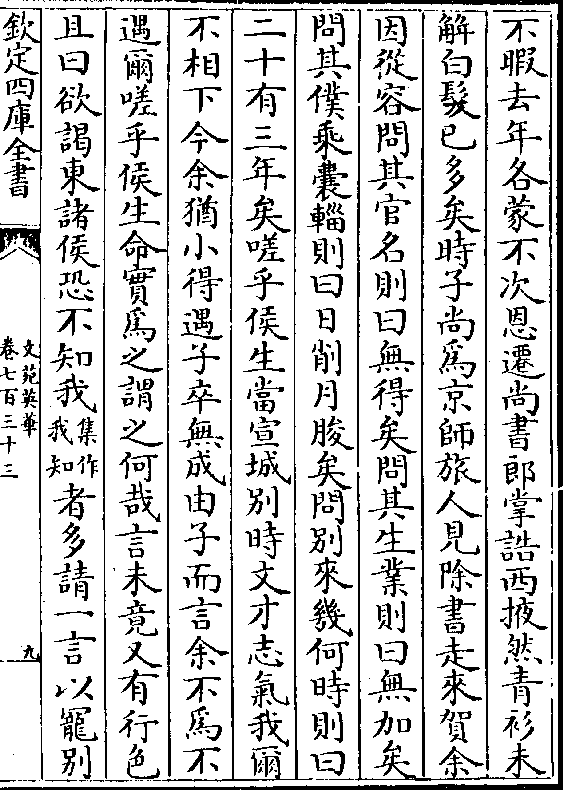 不暇去年各蒙不次恩遷尚書郎掌誥西掖然青衫未
解白髮已多矣時子尚為京師旅人見除書走來賀余
因從容問其官名則曰無得矣問其生業則曰無加矣
問其僕乘囊輜則曰日削月朘矣問別來幾何時則曰
二十有三年矣嗟乎侯生當宣城別時文才志氣我爾
不相下今余猶小得遇子卒無成由子而言余不為不
遇爾嗟乎侯生命實為之謂之何哉言未竟又有行色
且曰欲謁東諸侯恐不知我集作我知者多請一言以寵別
欽定四庫全書
文苑英華
卷七百三十三
九